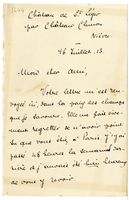 Château de St Léger
par Château Chinon
Nièvre
16 Juillet. 13.
Mon cher Ami,
Votre lettre m'est ren
voyée ici, sous les gris des champs
que je savoure. Elle me fait vive-
ment regretter de n'avoir point
su que vous étiez à Paris. J'y ai
passé 48 heures la semaine der-
nière et j'aurais été bien heureux
de vous y revoir